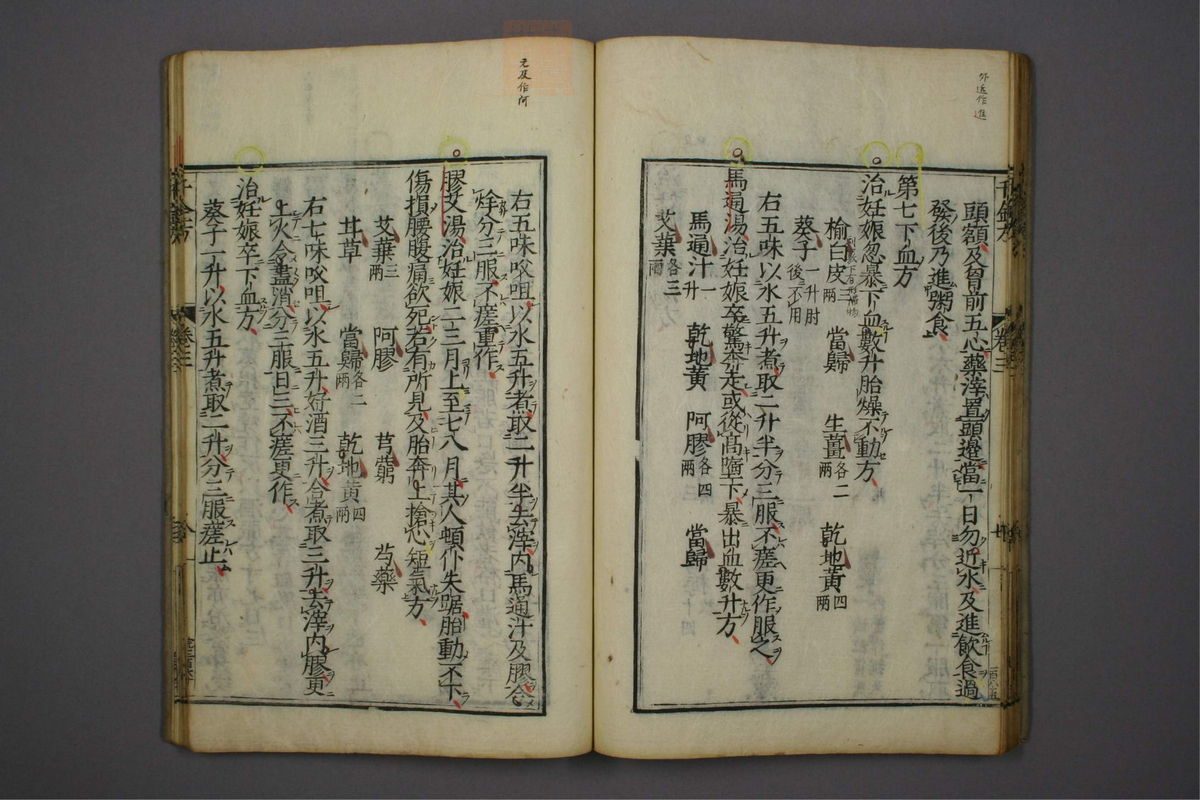 外近作進
頭額及胷前五心藥滓置頭邊當一日勿近水及進飲食過
發後乃進粥食
第七下血方
治妊娠忽暴下血數升胎燥不動方
榆白皮三兩 當歸 生薑各二兩 乾地黃四兩
葵子一升肘後不用
右五味以水五升煮取二升半分三服不瘥更作服之
馬通湯治妊娠卒驚奔走或從高墮下暴出血數升方
馬通汁一升 乾地黃 阿膠各四兩 當歸
艾葉各三兩
元及作阿
右五味㕮咀以水五升煮取二升半去滓内馬通汁及膠令
烊分三服不瘥重作
膠艾湯治妊娠二三月上至七八月其人頓仆失踞胎動不下
傷損腰腹痛欲死若有所見及胎奔上搶心短氣方
艾葉三兩 阿膠 芎藭 芍藥
甘草 當歸各二兩 乾地黃四兩
右七味㕮咀以水五升好酒三升合煮取三升去滓内膠更
上火令盡消分三服日三不瘥更作
治妊娠卒下血方
葵子一升以水五升煮取二升分三服瘥止
千金方 卷三